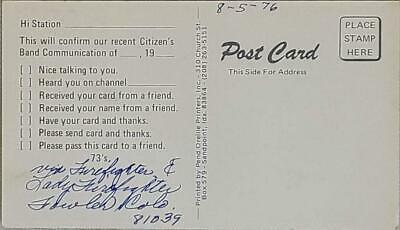 Hi Station
This will confirm our recent Citizen's
Band Communication of , 19
[ ] Nice talking to you.
[ ] Heard you on channel
[ ] Received your card from a friend.
[ ] Received your name from a friend.
[ ] Have your card and thanks.
[ ] Please send card and thanks.
[ ] Please pass this card to a friend.
73's,
via Firefighter &
Lady Firefighter
Fowler Colo.
81039
Printed by: Pend Oreille Printers, Inc.—310 Church St.
Box 579 - Sandpoint, Ida. 83864 - (208) 263-5151
8-5-76
Post Card
This Side For Address
PLACE
STAMP
HERE